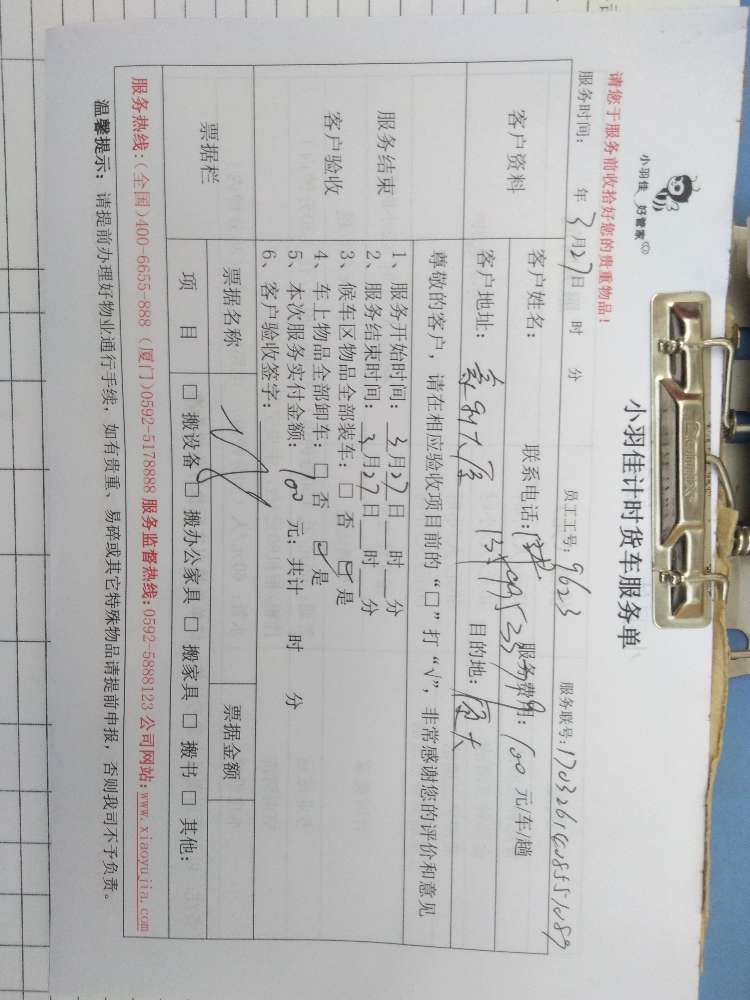 小羽佳 好管家
小羽佳计时货车服务单
请您于服务前收拾好您的贵重物品!
服务时间: 年3月27日 时 分 员工工号:9623 服务联号:
客户资料
客户姓名: 联系电话: 服务费用:100 元/车/趟
客户地址: 目的地:厦大
尊敬的客户,请在相应验收项目前的“□”打“√”,非常感谢您的评价和意见
服务结束
客户验收
1、服务开始时间:3月27日__时__分
2、服务结束时间:3月27日__时__分
3、候车区物品全部装车:□ 否 ☑ 是
4、车上物品全部卸车:□ 否 ☑ 是
5、本次服务实付金额:100 元;共计 时 分
6、客户验收签字:
票据栏
票据名称 票据金额
项 目 □ 搬设备 □ 搬办公家具 □ 搬家具 □ 搬书 □ 其他:
服务热线:(全国)400-6655-888 (厦门)0592-5178888 服务监督热线:0592-5888123 公司网站:www.xiaoyujia.com
温馨提示:请提前办理好物业通行手续,如有贵重、易碎或其它特殊物品请提前申报,否则我司不予负责。